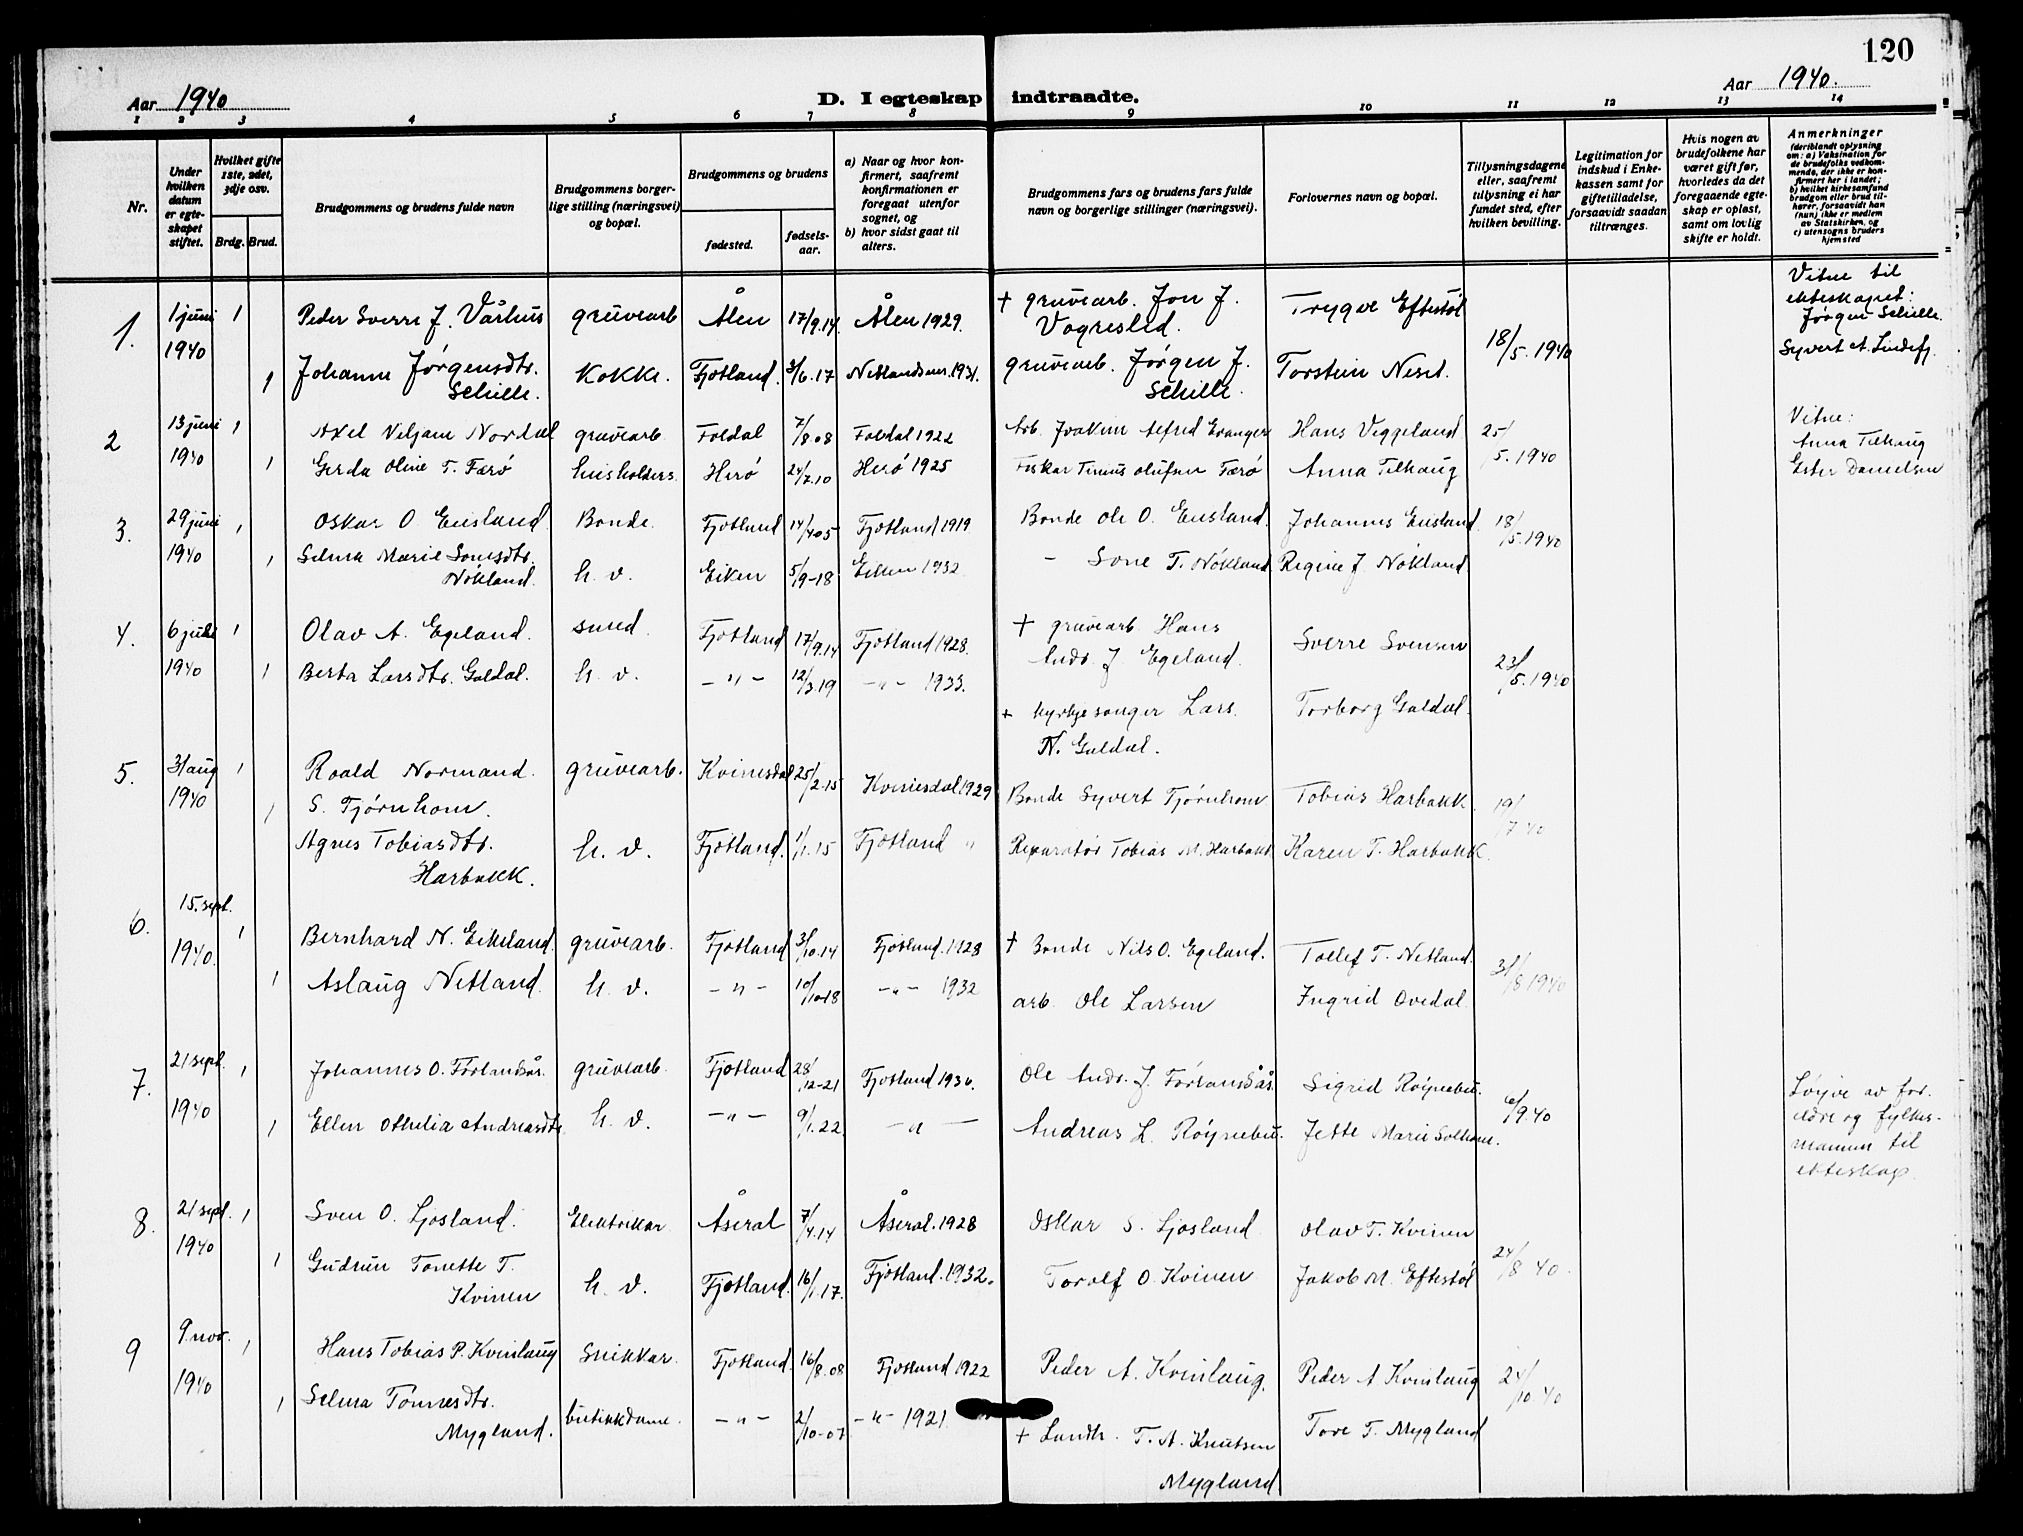 120
Aar 1940
D. I egteskap indtraadte.
Aar 1940.
1 2 3 4 5 6 7 8 9 10 11 12 13 14
Nr.
Under hvilken datum er egteskapet stiftet.
Hvilket gifte 1ste, 2det, 3dje osv.
Brdg. Brud.
Brudgommens og brudens fulde navn
Brudgommens borgerlige stilling (næringsvei) og bopæl.
Brudgommens og brudens
fødested.
fødselsaar.
a) Naar og hvor konfirmert, saafremt konfirmationen er foregaat utenfor sognet, og
b) hvor sidst gaat til alters.
Brudgommens fars og brudens fars fulde navn og borgerlige stillinger (næringsvei).
Forlovernes navn og bopæl.
Tillysningsdagene eller, saafremt tillysning ei har fundet sted, efter hvilken bevilling.
Legitimation for indskud i Enkekassen samt for giftetilladelse, forsaavidt saadan tiltrænges.
Hvis nogen av brudefolkene har været gift før, hvorledes da det foregaaende egteskap er opløst, samt om lovlig skifte er holdt.
Anmerkninger
(deriblandt oplysning om: a) Vaksination for de brudefolks vedkommende, der ikke er konfirmert her i landet; b) hvilket kirkesamfund brudgom eller brud tilhører, forsaavidt han (hun) ikke er medlem av Statskirken, og c) utensogns bruders hjemsted
1. 1 juni 1940 1 Peder Sverre J. Vårhus gruvearb Ålen 17/9.14 Ålen 1929. + gruvearb. Jon J. Vogreslid. Trygve Eftestøl 18/5. 1940
Vitne til ekteskapet: Jørgen Schille. Syvert A. Lindefj.
1 Johanne Jørgensdtr. Schille. Kokke. Fjotland. 3/6.17 1931. gruvearb. Jørgen J. Schille. Torstein Neset.
2 13 juni 1940 1 Axel Viljam Nordal gruvearb Foldal 7/8.08 Foldal 1922 Arb. Joakim Alfred Hans Veggeland 25/5. 1940
Vitne: Anna Tilhaug Ester Danielsen
1 Gerda Oline T. Færø husholders. Herø 24/7.10 Herø 1925 Fiskar Tinius Olufsen Færø Anna Tilhaug
3. 29 juni 1940 1 Oskar O. Eiesland. Bonde. Fjotland 14/4 05 Fjotland 1919 Bonde Ole O. Eiesland. Johannes Eiesland. 18/5. 1940
1 Selma Marie Sonesdtr. Nökland. h. v. Eiken 5/9-18 Eiken 1932 - Sone T. Nökland Regine J. Nökland
4. 6 juli 1940 1 Olav A. Egeland. smed. Fjotland 17/9.14 Fjotland 1928. + gruvearb. Hans Andr. J. Egeland. Sverre Svensen 23/5. 1940
1 Berta Larsdtr. Galdal. h. v. - " - 12/3.19 - " - 1933. + kyrkjesonger Lars N. Galdal. Torborg Galdal.
5. 31 aug 1940 1 Roald Normand S. Tjørnhom. gruvearb. Kvinesdal 25/2.15 Kvinesdal 1929 Bonde Syvert Tjørnhom Tobias Harbakk. 19/7 40
1 Agnes Tobiasdtr. Harbakk. h. v. Fjotland. 1/1.15 Fjotland " Reparatør Tobias M. Harbakk Karen T. Harbakk.
6. 15. sept. 1940. 1 Bernhard N. Eikeland. gruvearb. Fjotland 31/10.14 Fjotland. 1928 + Bonde Nils O. Egeland. Tollef T. Netland. 31/8 1940
1 Aslaug Netland. h. v. - " - 10/10-18 - " - 1932 arb. Ole Larsen Ingrid Ovedal.
7. 21 sept. 1940 1 Johannes O. Førlandsås. gruvearb. Fjotland 28/12-21 Fjotland 1936. Ole Andr. J. Førlandsås. Sigrid Røynebu. 6/9 40
Løyve av foreldre og fylkesmannen til ekteskap.
1 Ellen Othelia Andreasdtr. h. v. - " - 9/1.22. - " - Andreas L. Røynebu. Jette Marie Solhom.
8. 21 sept. 1940 1 Sven O. Ljosland. Elektrikar Åseral 7/4.14 Åseral. 1928 Oskar S. Ljosland Olav T. Kvinen 24/8 40.
1 Gudrun Tonette T. Kvinen h. v. Fjotland. 16/1.17. Fjotland. 1932. Torolf O. Kvinen Jakob M. Eftestøl
9 9. nov. 1940 1 Hans Tobias P. Kvinlaug Snikkar. Fjotland. 16/8.08 Fjotland 1922 Peder A. Kvinlaug. Peder A Kvinlaug 24/10 40
1 Selma Tönnesdtr. Mygland. butikkdame. - " - 2/10-07 - " - 1921. + Landh. T. A. Knutsen Mygland Tore T. Mygland